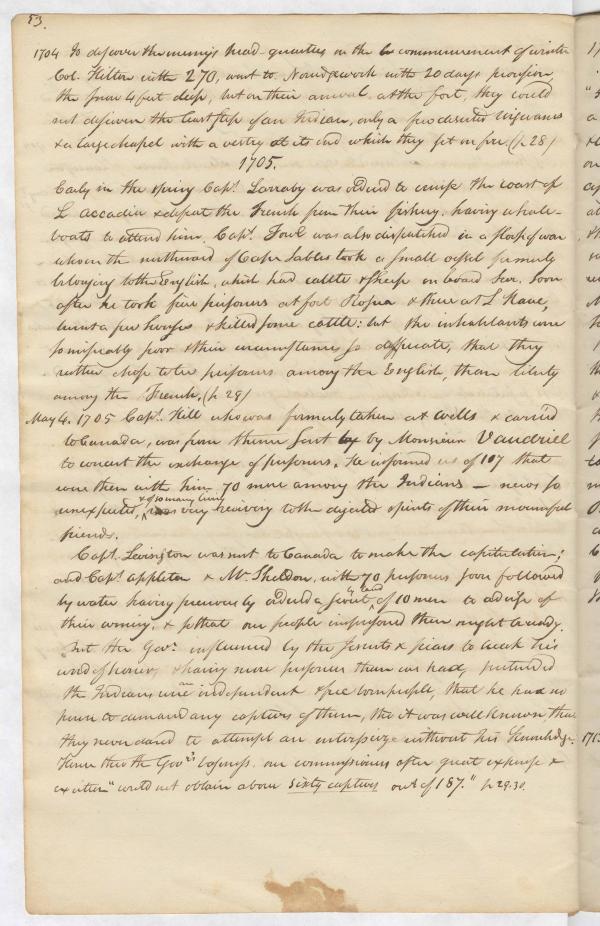 53.
1704 To discover the enemy's head-quarters in the commencement of winter
Col. Hilton with 270, went to Norridgewock with 20 days provision,
the snow 4 feet deep, but on their arrival at the fort, they could
not discover the least step of an Indian, only a few deserted wigwams
& a large chapel with a vestry at its end which they set on fire. (p 28)
1705.
Early in the spring Capt. Larraby was ordered to cruise the coast of
L'accadia & defeat the French from their fishery, having whale-
boats to attend him. Capt. Fowl was also dispatched in a sloop of war
who on the northward of Cape Sables took a small vessel formerly
belonging to the English, which had cattle & sheep on board her. Soon
after he took five prisoners at fort Rosua & three at L'Have,
burnt a few houses & killed some cattle: but the inhabitants were
so miserably poor & their circumstances so desperate, that they
rather chose to be prisoners among the English, than liberty
among the French. (p 29)
May 4. 1705 Capt. Hill who was formerly taken at Wells & carri'd
to Canada, was from thence sent by Monsieur Vaudriel
to concert the exchange of prisoners. He informed us of 117 that
were then with him 70 more among the Indians — news so
& of so many living
unexpected, was very reviving to the dejected spirits of their mournful
friends.
Capt. Levingston was sent to Canada to make the capitulation;
and Capt. Appleton & Mr. Sheldon, with 70 prisoners soon followed
by land
by water having previously ordered a scout of 10 men to advise of
their coming, & so that our people imprisoned there might be ready.
"But the Govr. influenced by the Jesuits & priests to break his
word of honor, & having more prisoners than we had, pretended
are
the Indians were independent & free born people, that he had no
power to demand any captives of them, tho it was well known that
they never dared to attempt an enterprize without his knowledge.
Hence thro the Govr's baseness, our commissioners after great expense &
exertion "could not obtain above sixty captives out of 187." p 29.30.